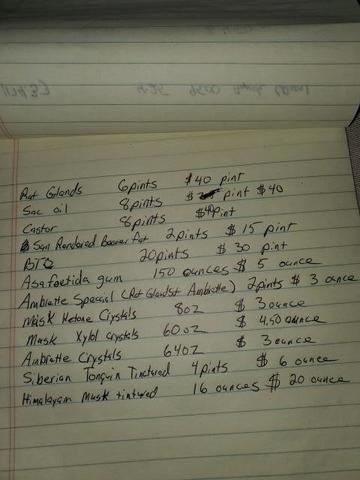 Rat Glands 6pints $40 pint
Sac oil 8pints $ pint $40
Castor 8pints $40pint
Sun Rendered Beaver Fat 2pints $15 pint
BTO 20pints $30 pint
Asafoetida gum 150 ounces $5 ounce
Ambrette Special (Rat Glands+ Ambrette) 2pints $3 ounce
Musk Ketone Crystals 8oz $3ounce
Musk Xylol crystals 60oz $4.50 ounce
Ambrette Crystals 64oz $3ounce
Siberian Tonquin Tinctured 4pints $6 ounce
Himalayan Musk tintured 16 ounces $20 ounce